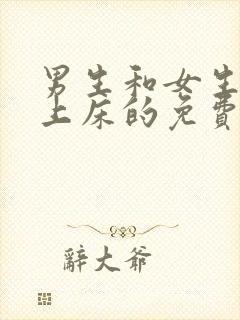 男生和女生
上床的免費
辭大爺